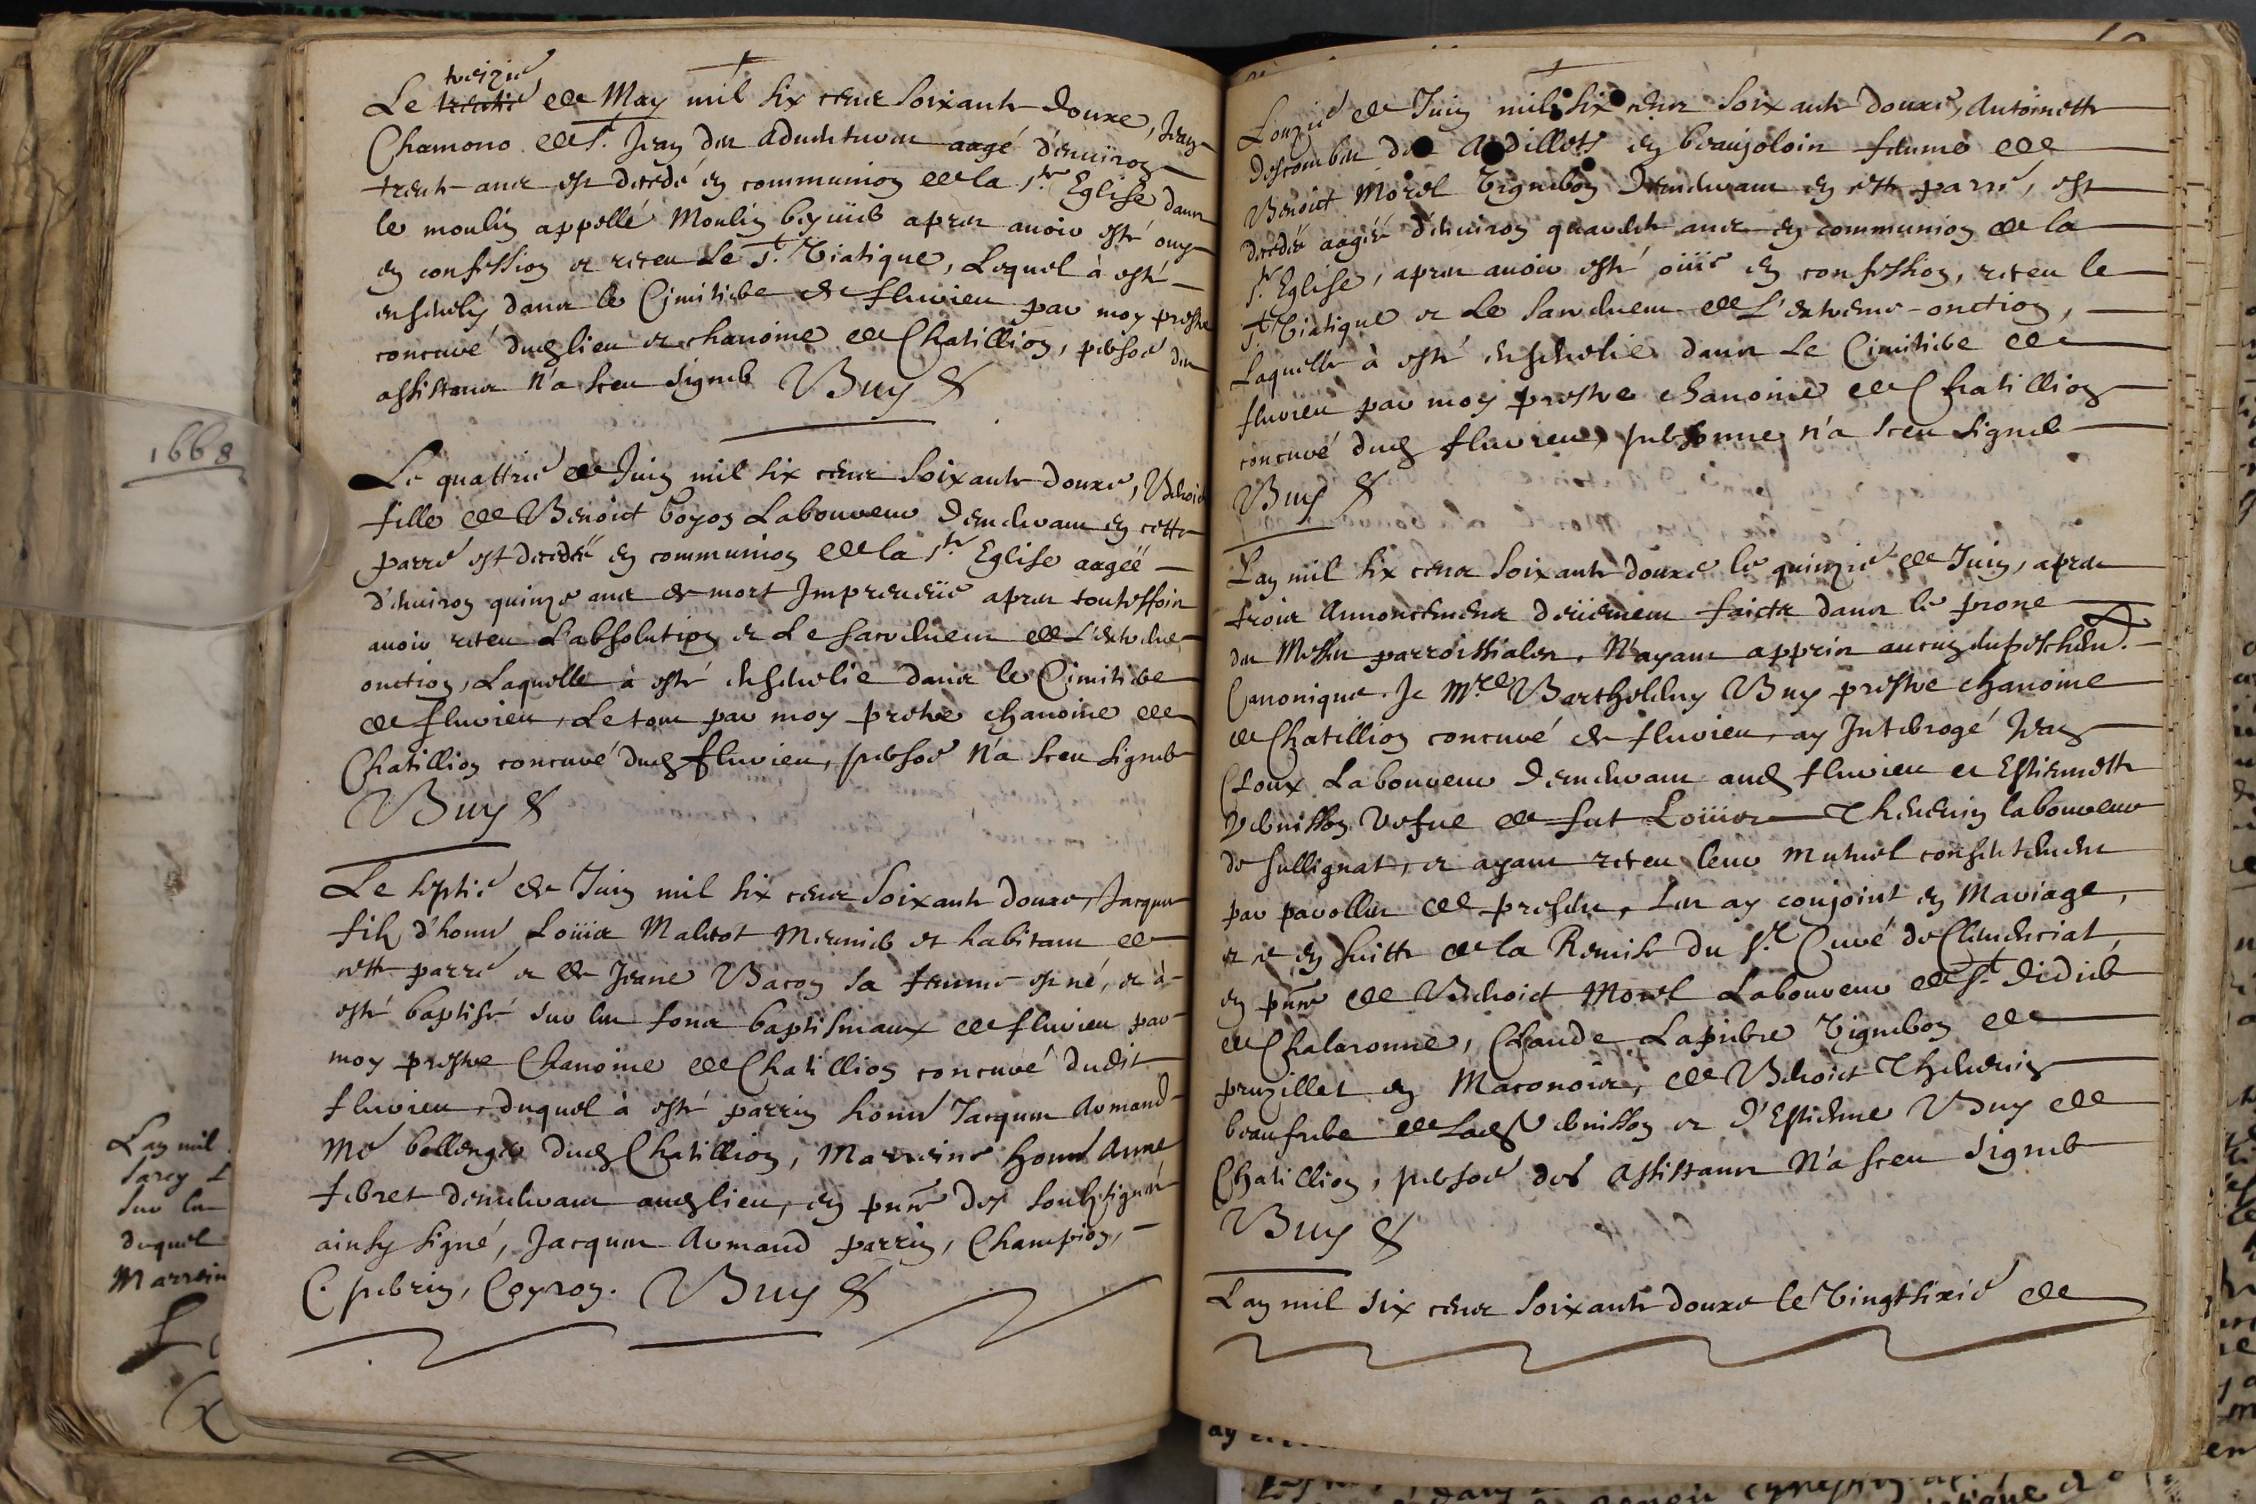 treizie
Le trentie de May mil six cens soixante douze, Jean
Chamono de St. Jean des aduentures aagé d'enuiron
trente ans est decedé en communion de la Ste Eglise dans
le moulin appellé Moulin apres auoir esté ouy
en confession et receu Le St. Viatique, Lequel à esté
enseuely dans le Cimitiere de fluvieu par moy prestre
concuré dud lieu et chanoine de Chatillion, persoe des
assistans n'a sceu signer Buy
Le quattrie de Juin mil six cens soixante douze, Benoite
fille de Benoict boyon Laboureur Demeurant en cette
parre est decedeé en communion de la Ste Eglise aageé
d'enuiron quinze ans de mort Impreueüe apres touteffois
auoir receu L'absolution et Le sacrement de L'extreme
onction, Laquelle à esté enseuelie dans le Cimitiere
de fluvieu, Le tout par moy prestre chanoine de
Chatillion concuré dud fluvieu, persoe n'a sceu signer
Buy
Le septie de Juin mil six cens soixante douze, Jacques
fils d'honne Loüis Maletot Meunier et habitant de
cette parre et de Jeane Bacon sa femme est né, et à
esté baptisé sur les fons baptismaux de fluvieu par
moy prestre Chanoine de Chatillion concuré dudit
fluvieu, duquel à esté parrin honne Jacques Armand
Me bollenger dud Chatillion, Marreine honne Anne
febret demeurant aud lieu, en pnce des soubsignés
ainsy signé, Jacques Armand parrin, Champion,
C. perrin, Coyron. Buy
L'onzie de Juin mil six cens soixante douze, Antoinette
descombes des Ardillets en beaujolois femme de
Benoict Morel Vigneron Demeurant en cette parre, est
decedée aagée d'enuiron quarente ans en communion de la
Ste Eglise, apres auoir esté oüie en confession, receu le
St. Viatique et Le sacrement de L'extreme-onction,
Laquelle à esté enseuelie dans Le Cimitiere de
fluvieu par moy prestre chanoine de Chatillion
concuré dud fluvieu, personne n'a sceu signer
Buy
L'an mil six cens soixante douze le quinzie de Juin, apres
trois Annoncemens deüement faicts dans le prone
des Messes parroissiales, N'ayant appris aucun empeschemt.
Canonique. Je Mre Bartholemy Buy prestre chanoine
de Chatillion concuré de fluvieu, ay Interogé Jean
Cloux Laboureur Demeurant aud fluvieu et Estiennette
Vernisson Vefue de fut Loüis Theuenin laboureur
de sullignat, et ayant receu leur mutuel consentement
par parolles de presens, Les ay conjoint en Mariage,
et ce en suitte de la Remise du Sr Curé de Clemenciat,
en pnce de Benoict Morel Laboureur de St. didier
de Chalaronne, Claude Lapierre Vigneron de
pruzillet en Maconois, de Benoict Theuenin
beaufrere de Lad Vernisson et d'Estienne Buy de
Chatillion, persoe des assistans n'a sceu signer
Buy
L'an mil six cens soixante douze le Vingtsixie de
1668
L'an mil
sur les
duquel
Marrein